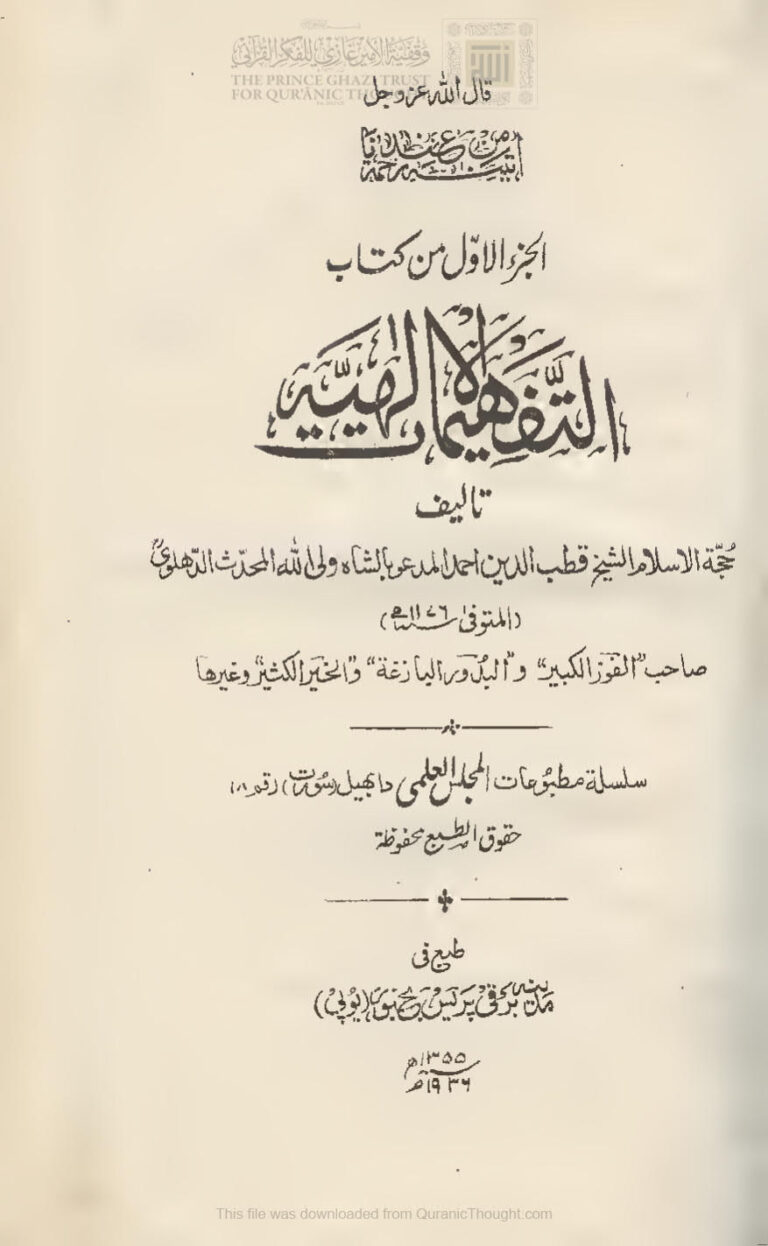 وقفية الأمير غازي للفكر القرآني
THE PRINCE GHAZI TRUST
FOR QUR'ĀNIC THOUGHT
قال الله عز وجل
اٰتيناه رحمة من عندنا
الجزء الاوّل من كتاب
التَّفهيمات الالٰهيّة
تاليف
حُجّة الاسلام الشيخ قطب الدين احمد المدعو بالشاه ولى الله المحدّث الدّهلوىّ
(المتوفى سنة ١١٧٦ھ)
صاحب "الفوز الكبير" و "البدور البازغة" و "الخير الكثير" وغيرها
سلسلة مطبوعات المجلس العلمى دابهيل (سُورت) رقم ١٨
حقوق الطبع محفوظة
طبع فى
مدينه برقى پريس بجنور (يوپى)
١٣٥٥ھ
١٩٣٦م
This file was downloaded from QuranicThought.com